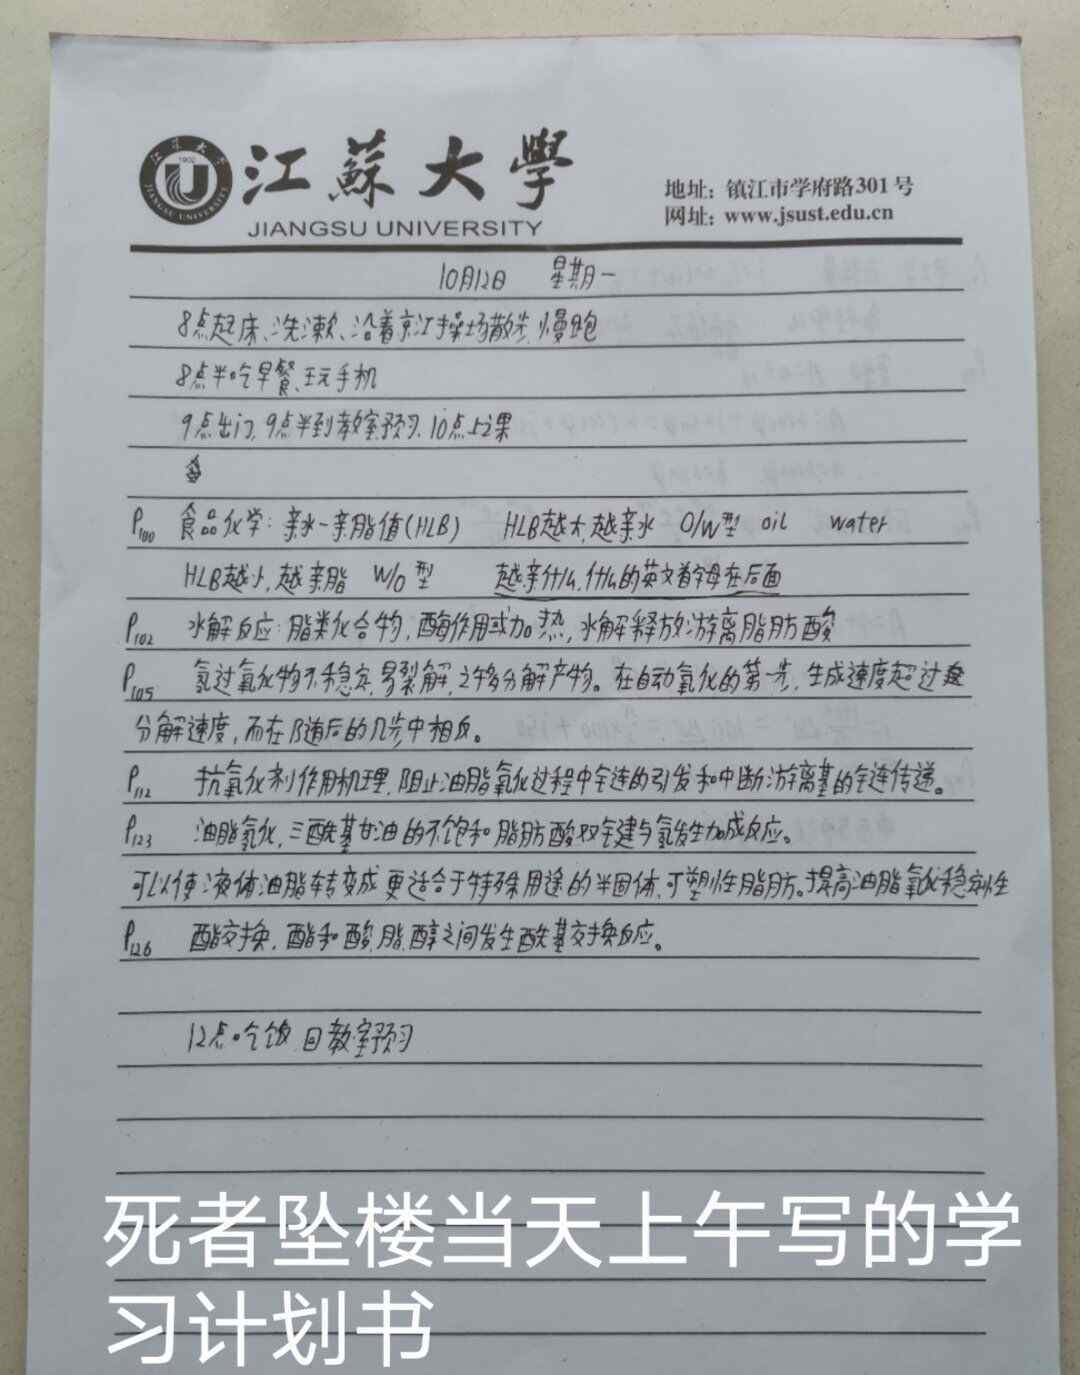 江蘇大學
JIANGSU UNIVERSITY
地址：镇江市学府路301号
网址：www.jsust.edu.cn
10月12日 星期一
8点起床、洗漱、沿着京江操场散步,慢跑
8点半吃早餐、玩手机
9点出门,9点半到教室预习,10点上课
P100 食品化学：亲水-亲脂值(HLB) HLB越大,越亲水 O/W型 oil water
HLB越小,越亲脂 W/O型 越亲什么,什么的英文首字母在后面
P102 水解反应：脂类化合物,酶作用或加热,水解释放游离脂肪酸
P105 氢过氧化物不稳定,易裂解,之多分解产物。在自动氧化的第一步,生成速度超过
分解速度,而在随后的几步中相反。
P112 抗氧化剂作用机理,阻止油脂氧化过程中链的引发和中断游离基的链传递。
P123 油脂氢化,三酰基甘油的不饱和脂肪酸双键与氢发生加成反应。
可以使液体油脂转变成更适合于特殊用途的半固体,可塑性脂肪。提高油脂氧化稳定性
P126 酯交换,酯和酸,脂,醇之间发生酰基交换反应。
12点吃饭 回教室预习
死者坠楼当天上午写的学
习计划书